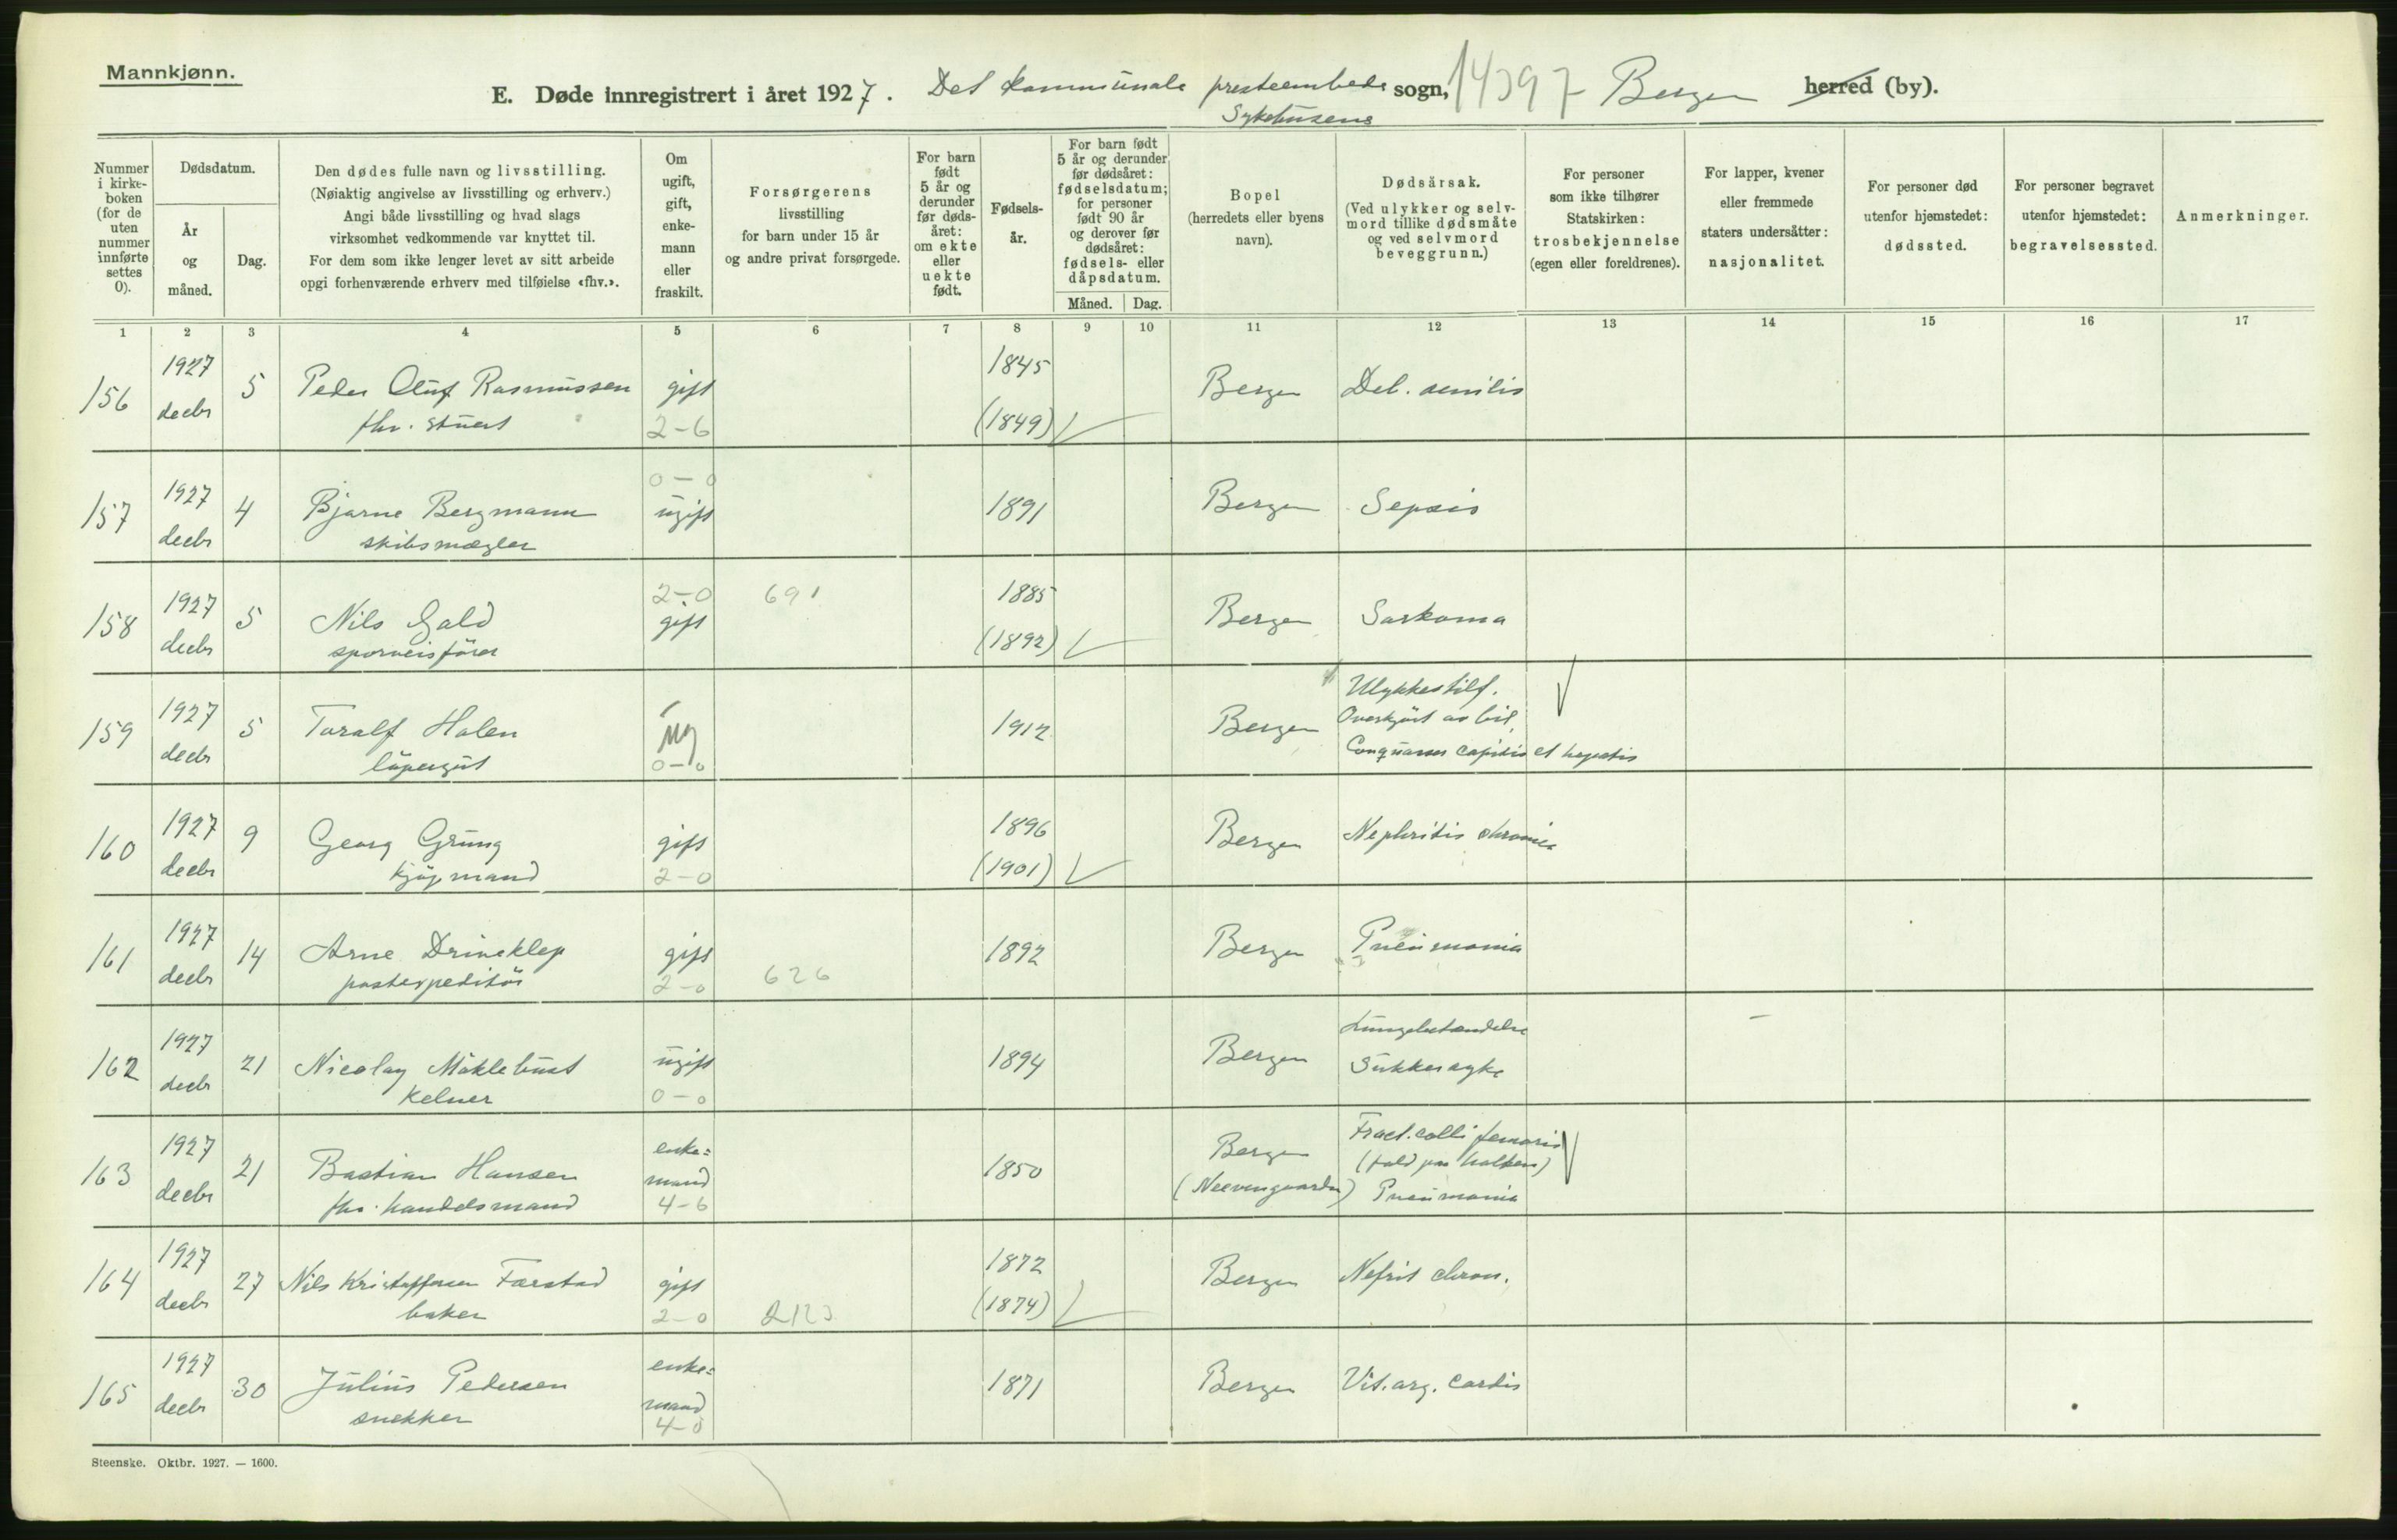 Mannkjønn.
E. Døde innregistrert i året 1927. Det kommunale presteembede sogn, 14397 Bergen herred (by).
Sykehusene
Nummer i kirke-boken (for de uten nummer innførte settes 0).
Dødsdatum.
År og måned.
Dag.
Den dødes fulle navn og livsstilling.
(Nøiaktig angivelse av livsstilling og erhverv.)
Angi både livsstilling og hvad slags
virksomhet vedkommende var knyttet til.
For dem som ikke lenger levet av sitt arbeide
opgi forhenværende erhverv med tilføielse «fhv.».
Om ugift, gift, enke-mann eller fraskilt.
Forsørgerens
livsstilling
for barn under 15 år
og andre privat forsørgede.
For barn født 5 år og derunder før døds-året: om ekte eller uekte født.
Fødsels-år.
For barn født 5 år og derunder før dødsåret: fødselsdatum; for personer født 90 år og derover før dødsåret: fødsels- eller dåpsdatum.
Måned. Dag.
Bopel
(herredets eller byens
navn).
Dødsårsak.
(Ved ulykker og selv-
mord tillike dødsmåte
og ved selvmord
beveggrunn.)
For personer
som ikke tilhører
Statskirken:
trosbekjennelse
(egen eller foreldrenes).
For lapper, kvener
eller fremmede
staters undersåtter:
nasjonalitet.
For personer død
utenfor hjemstedet:
dødssted.
For personer begravet
utenfor hjemstedet:
begravelsessted.
Anmerkninger.
1 2 3 4 5 6 7 8 9 10 11 12 13 14 15 16 17
156 1927 decbr 5 Peder Oluf Rasmussen gift 1845 Bergen Deb. senilis
fhv. stuert 2-6 (1849)
0-0
157 1927 decbr 4 Bjarne Bergmann ugift 1891 Bergen Sepsis
skibsmægler
2-0 691
158 1927 decbr 5 Nils Gald gift 1885 Bergen Sarkoma
sporveisförer (1892)
159 1927 decbr 5 Toralf Halen ug 1912 Bergen Ulykkestilf.
Overkjört av bil,
löpergut 0-0 capitis et hepatis
160 1927 decbr 9 Georg Grung gift 1896 Bergen Nephritis chronica
kjöpmand 2-0 (1901)
161 1927 decbr 14 Arne gift 1892 Bergen Pneumonia
postexpeditör 2-0 626
162 1927 decbr 21 Nicolay Möklebust ugift 1894 Bergen Lungebetændelse
Kelner 0-0 Sukkersyke
163 1927 decbr 21 Bastian Hansen enke=mand 1850 Bergen Fract. colli femoris
fhv. handelsmand 4-6 (Neevengaarden) (fald paa holken)
Pneumonia
164 1927 decbr 27 Nils Kristoffersen Farstad gift 1872 Bergen Nefrit chron.
baker 2-0 2123 (1874)
165 1927 decbr 30 Julius Pedersen enke=mand 1871 Bergen Vit. org. cordis
snekker 4-0
Steenske. Oktbr. 1927. — 1600.